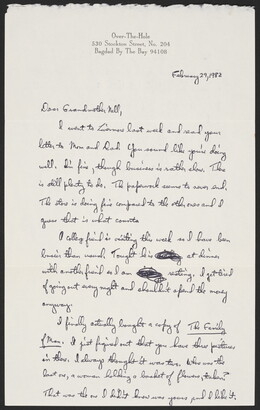 Over-The-Hole
530 Stockton Street, No. 204
Bagdad By The Bay 94108
February 29, 1982
Dear Grandmother Nell,
I went to Livermore last week and read your
letter to Mom and Dad. You sound like you're doing
well. I'm fine, though business is rather slow. There
is still plenty to do. The paperwork seems to never end.
The store is doing fine compared to the others and I
guess that is what counts.
A college friend is visiting this week so I have been
busier than usual. Tonight he is at dinner
with another friend so I am resting. I get tired
of going out every night and shouldn't spend the money
anyway.
I finally actually bought a copy of The Family
of Man. I just figured out that you have three pictures
in there. I always thought it was two. When was the
last one, a woman holding a basket of flowers, taken?
That was the one I didn't know was yours and I like it.